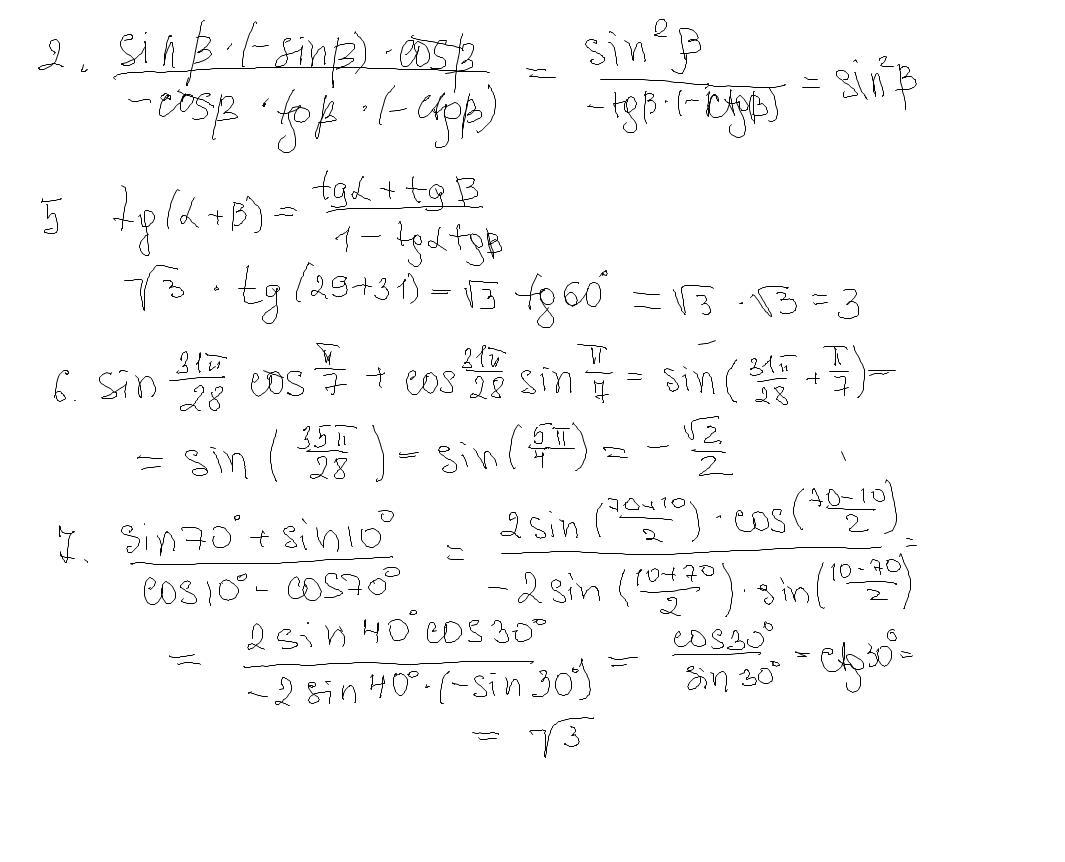 2. (sinβ·(-sinβ)·cosβ)/(-cosβ·tgβ·(-ctgβ)) = sin²β/(-tgβ·(-ctgβ)) = sin²β
5 tg(α+β) = (tgα + tgβ)/(1 - tgαtgβ)
√3 · tg(29+31) = √3 tg60° = √3 · √3 = 3
6. sin 31π/28 cos π/7 + cos 31π/28 sin π/7 = sin(31π/28 + π/7) =
= sin(35π/28) = sin(5π/4) = - √2/2
7. (sin70° + sin10°)/(cos10° - cos70°) = (2sin((70+10)/2)·cos((70-10)/2))/(-2sin((10+70)/2)·sin((10-70)/2)) =
= (2sin40°cos30°)/(-2sin40°·(-sin30°)) = cos30°/sin30° = ctg30° =
= √3